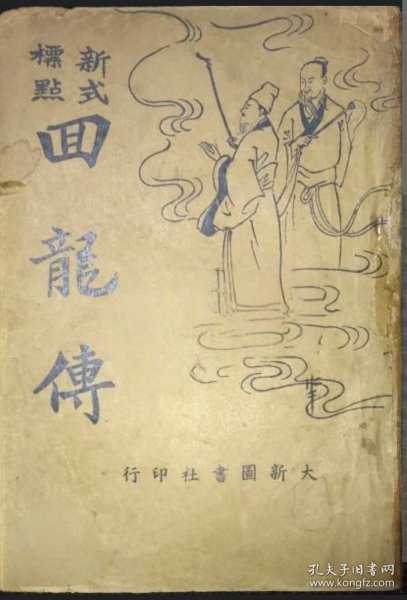 新式
標點
回龍傳
大新圖書社印行
孔夫子旧书网